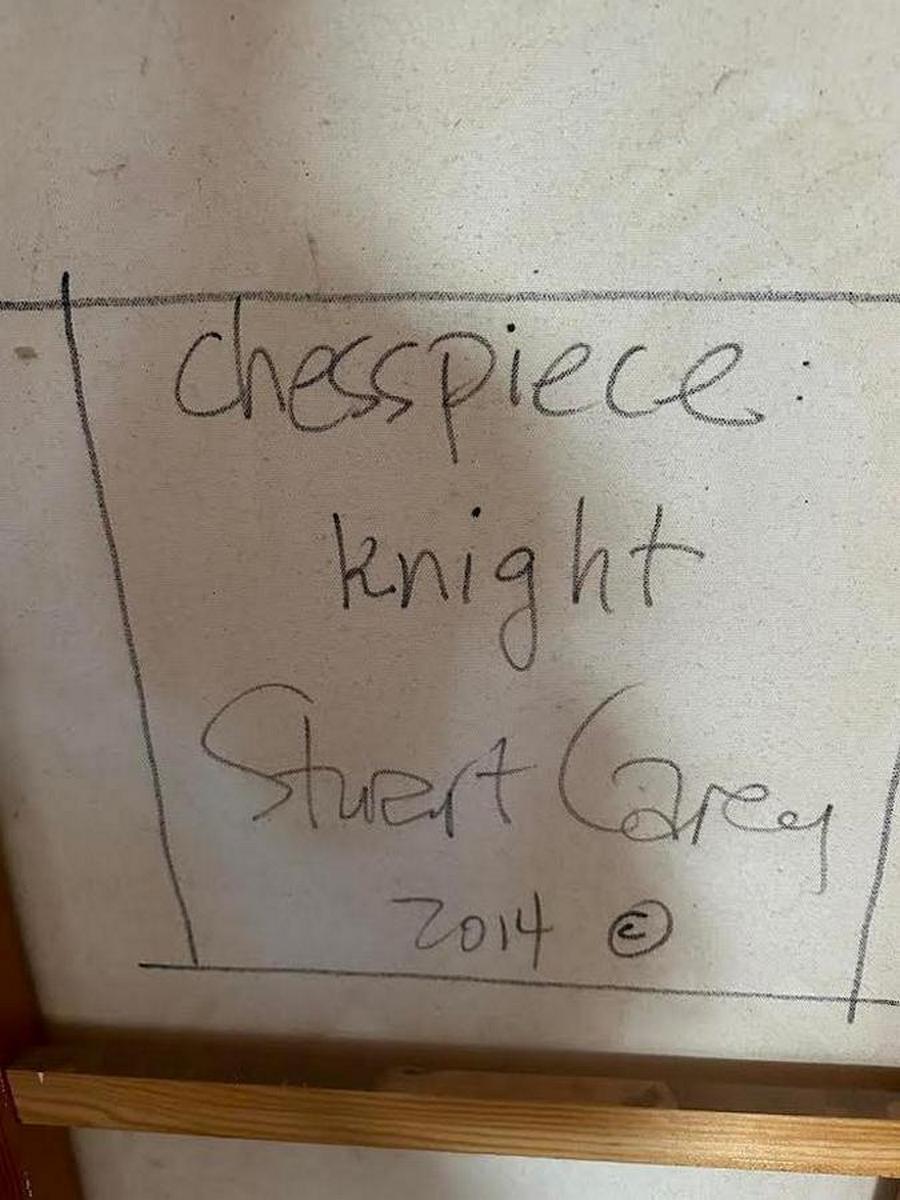 chesspiece:
knight
Stuart Carey
2014 ©